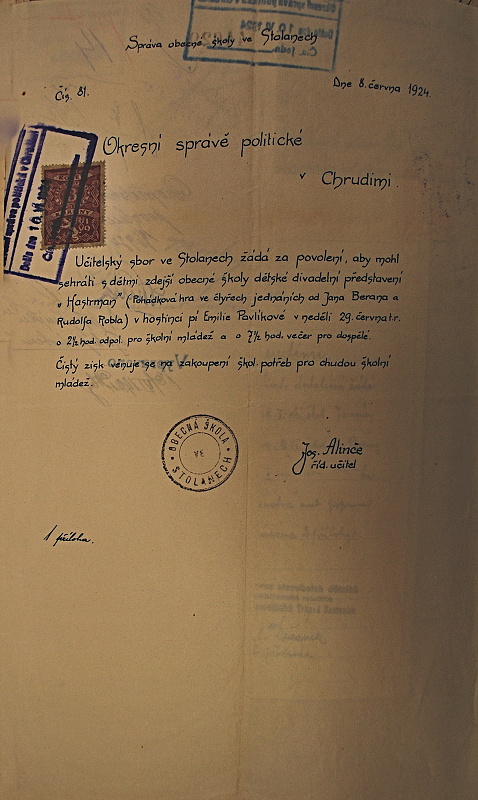 Správa obecné školy ve Stolanech
Dne 8. června 1924.
Čís. 81.
Okresní správě politické
v Chrudimi.
Učitelský sbor ve Stolanech žádá za povolení, aby mohl
sehráti s dětmi zdejší obecné školy dětské divadelní představení
„Hastrman" (Pohádková hra ve čtyřech jednáních od Jana Berana a
Rudolfa Robla) v hostinci pí Emilie Pavlíkové v neděli 29. června t.r.
o 2½ hod. odpol. pro školní mládež a o 7½ hod. večer pro dospělé.
Čistý zisk věnuje se na zakoupení škol. potřeb pro chudou školní
mládež.
OBECNÁ ŠKOLA
VE
STOLANECH
Jos. Alinče
říd. učitel
1 příloha.
správa politická v Chrudimi
Došlo dne 10. VI.